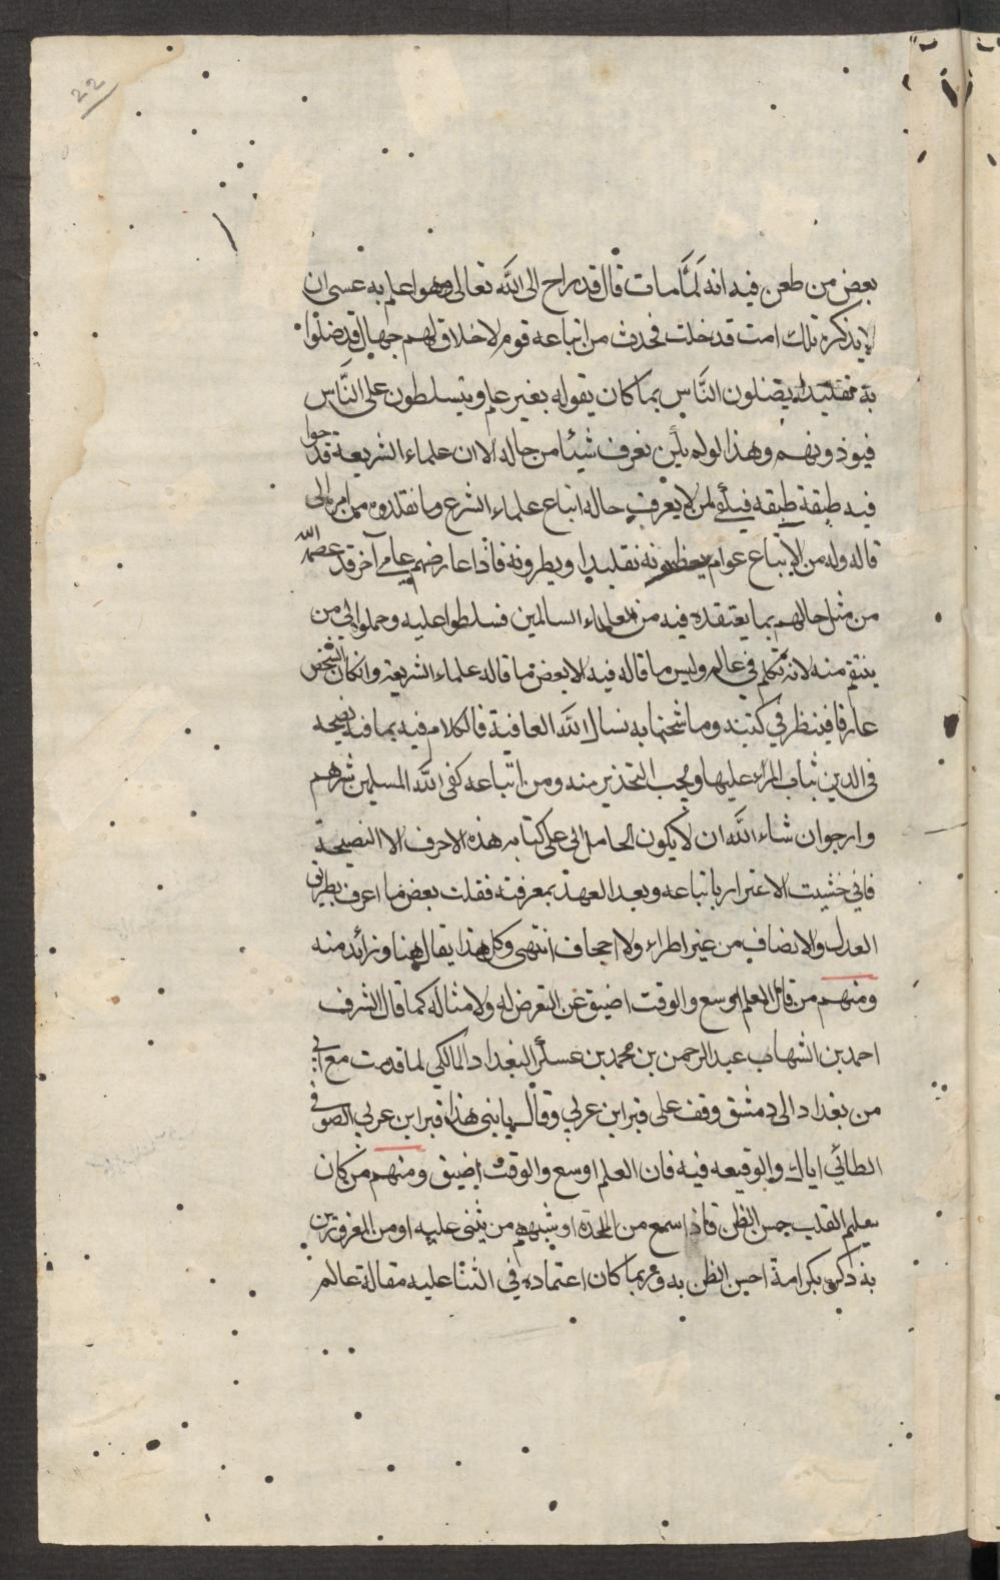 22
بعض من طعن فيه انه لَمَّا مات قال قد راح الى الله تعالى وهو اعلم به عسى ان
لا يذكره تلك امت قد خلت فحدث من اتباعه قوم لا خلاق لهم جهال قد ضلوا
به تقليدا يضلون النَّاس بما كان يقوله بغير علم ويتسلطون على النَّاس
فيوذونهم وهذا لو لم يكن نعرف شيئا من حاله الا ان علماء الشريعة قدحوا
فيه طبقة طبقه فينبغي لمن لا يعرف حاله اتباع علماء الشرع وما نقلدوه من امر الى
قاله وله من الاتباع عوام يعظمونه تقليدا ويطرونه فاذا عارضهم عامي آخر قد عصمه الله
من مثل حالهم بما يعتقده فيه من العلماء السالمين فسلطوا عليه وحملوا الى من
ينتقم منه لانه تكلم في عالم وليس ما قاله فيه الا بعض ما قاله علماء الشريعة وان كان الشخص
عارفا فينظر في كتبه وما شحنها به نسال الله العافية فالكلام فيه بما فيه نصيحه
في الدين يثاب المرء عليها ويجب التحذير منه ومن اتباعه كفى الله المسلمين شرهم
وارجوا ان شاء الله ان لا يكون الحامل لى على كتابه هذه الاحرف الا النصيحة
فاني خشيت الاغترار باتباعه وبعد العهد بمعرفته فقلت بعض ما اعرف بطريق
العدل والانصاف من غير اطراء ولا اجحاف انتهى وكل هذا يقال هنا وزائد منه
ومنهم من قال العلم اوسع والوقت اضيق عن التعرض له ولامثاله كما قال الشرف
احمد بن الشهاب عبد الرحمن بن محمد بن عسكر البغداد المالكي لما قدمت مع ابي
من بغداد الى دمشق وقف على قبر ابن عربي وقال يا بني هذا قبر ابن عربي الصوفي
الطائي اياك والوقيعه فيه فان العلم اوسع والوقت اضيق ومنهم من كان
سليم القلب حسن الظن فاذا سمع من الملحدة او شبههم من يثنى عليه او من المغرورين
به ذاكره بكرامة احسن الظن به وربما كان اعتماده في الثنا عليه مقالة عالم